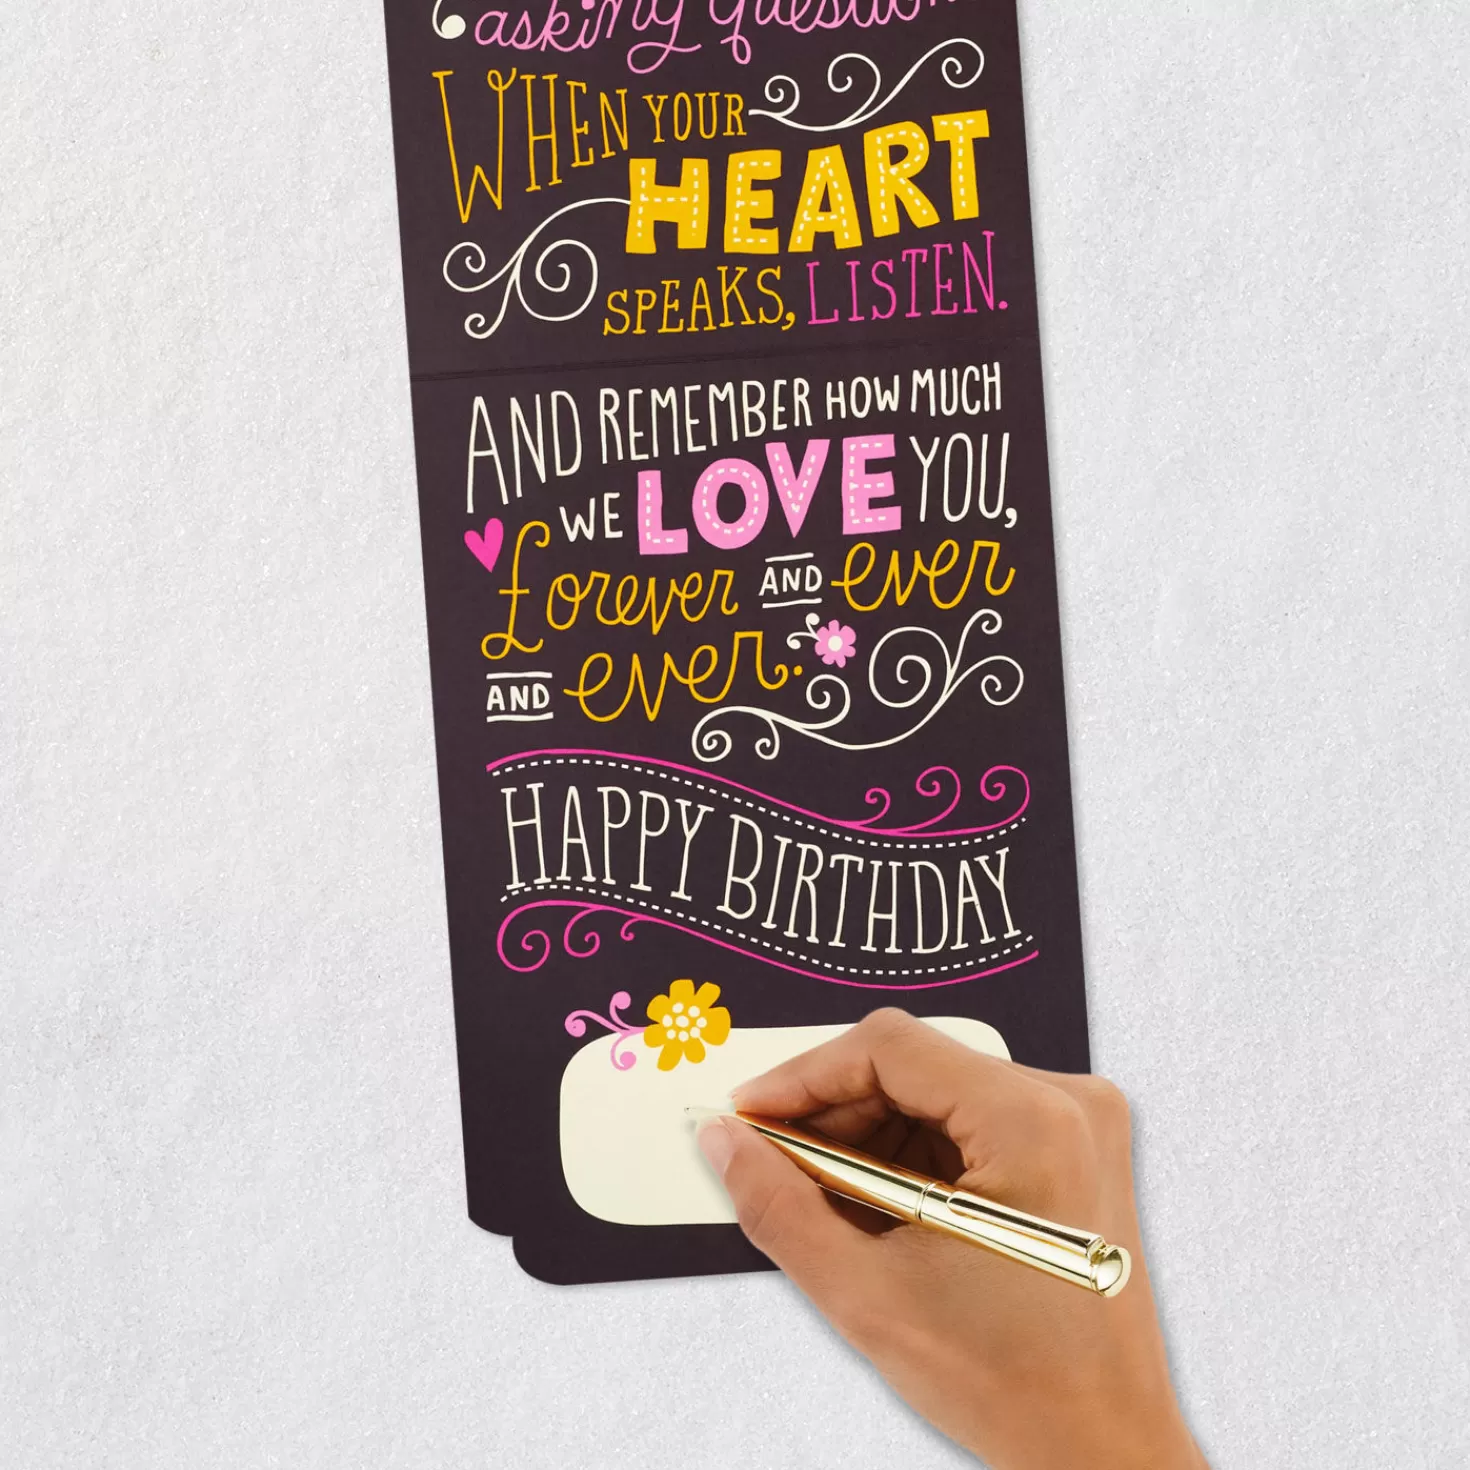 asking question
WHEN YOUR
HEART
SPEAKS, LISTEN.
AND REMEMBER HOW MUCH
WE LOVE YOU,
forever AND ever
AND ever.
HAPPY BIRTHDAY